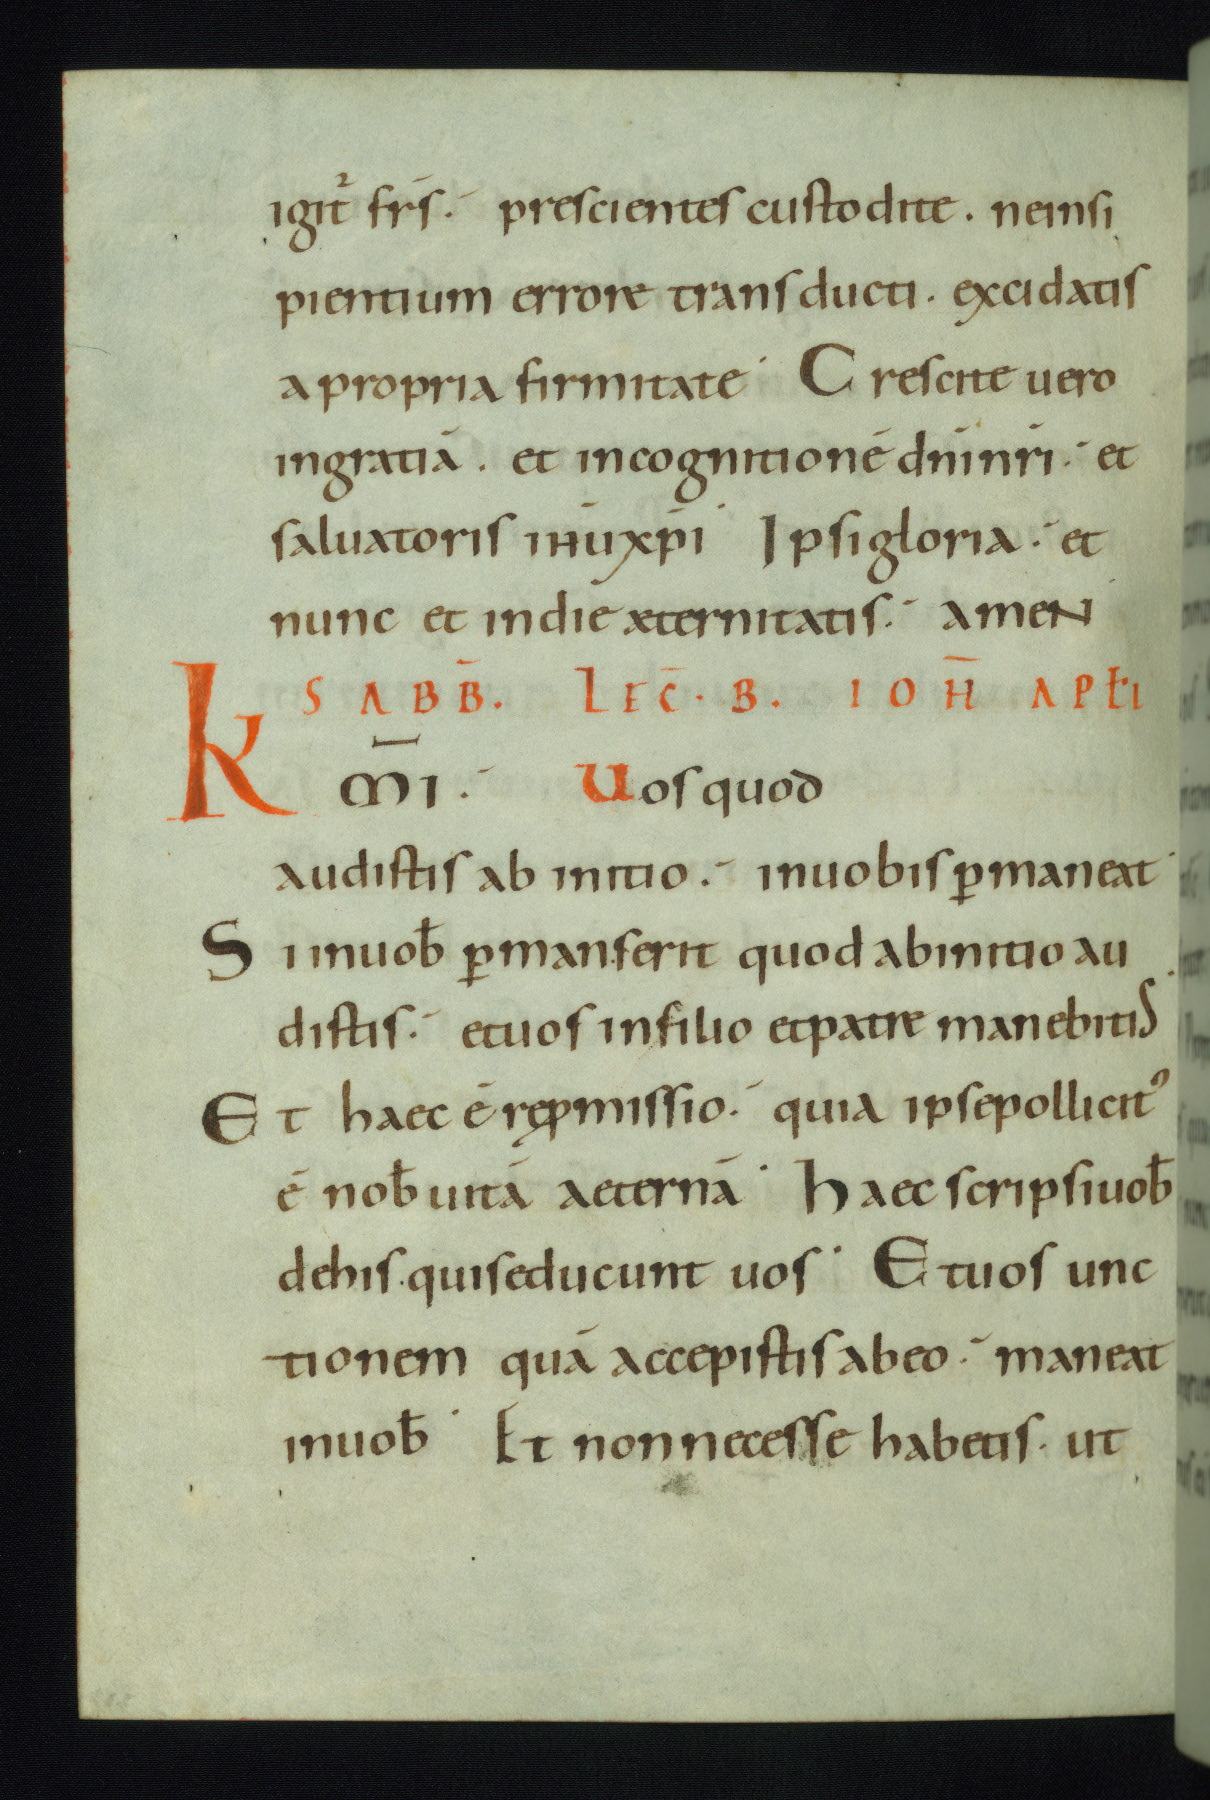 igit᷑ fr̄s. prescientes custodite. neinsi
pientium errore transducti. excidatis
apropria firmitate Crescite uero
ingratiā. et incognitionē dn̄inr̄i. et
saluatoris ih̄uxp̄i Ipsigloria. et
nunc et indie æternitatis. amen
K SABB̄. LEC̄. B. IOH̄ APƚI
m̄i. Uosquod
audistis ab initio. inuobis ꝑmaneat
Si inuob̄ ꝑmanserit quod abinitio au
distis. etuos infilio etpatre manebitis
Et haec ē reꝓmissio. quia ipsepollicitꝰ
ē nob̄ uitā aeternā haec scripsiuob̄
dehis. quiseducunt uos Etuos unc
tionem quā accepistis abeo. maneat
inuob̄ Et nonnecesse habetis. ut